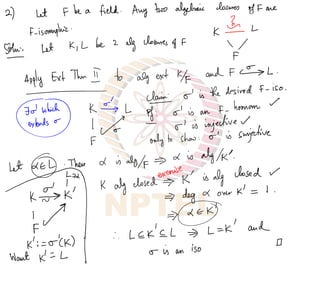 2) Let F be a field. Any two algebraic closures of F are
F-isomorphic.
K ≅ L
F
Soln: Let K, L be 2 alg closures of F
Apply Ext Thm II to alg ext K/F and F ↪ L.
σ
∃ σ' which extends σ
K →σ' L
F
σ
Claim: σ' is the desired F-iso.
σ' is an F-homom ✓
σ' is injective ✓
only to show: σ' is surjective
Let α∈L. Then α is alg/F ⇒ α is alg/K'.
L∋α
K →σ' K'
~
F
exercise
K alg closed ⇒ K' is alg closed ✓
⇒ deg α over K' = 1.
⇒ α∈K'
K' := σ'(K)
Want K' = L
∴ L⊆K'⊆L ⇒ L=K' and
σ is an iso □
NPTEL